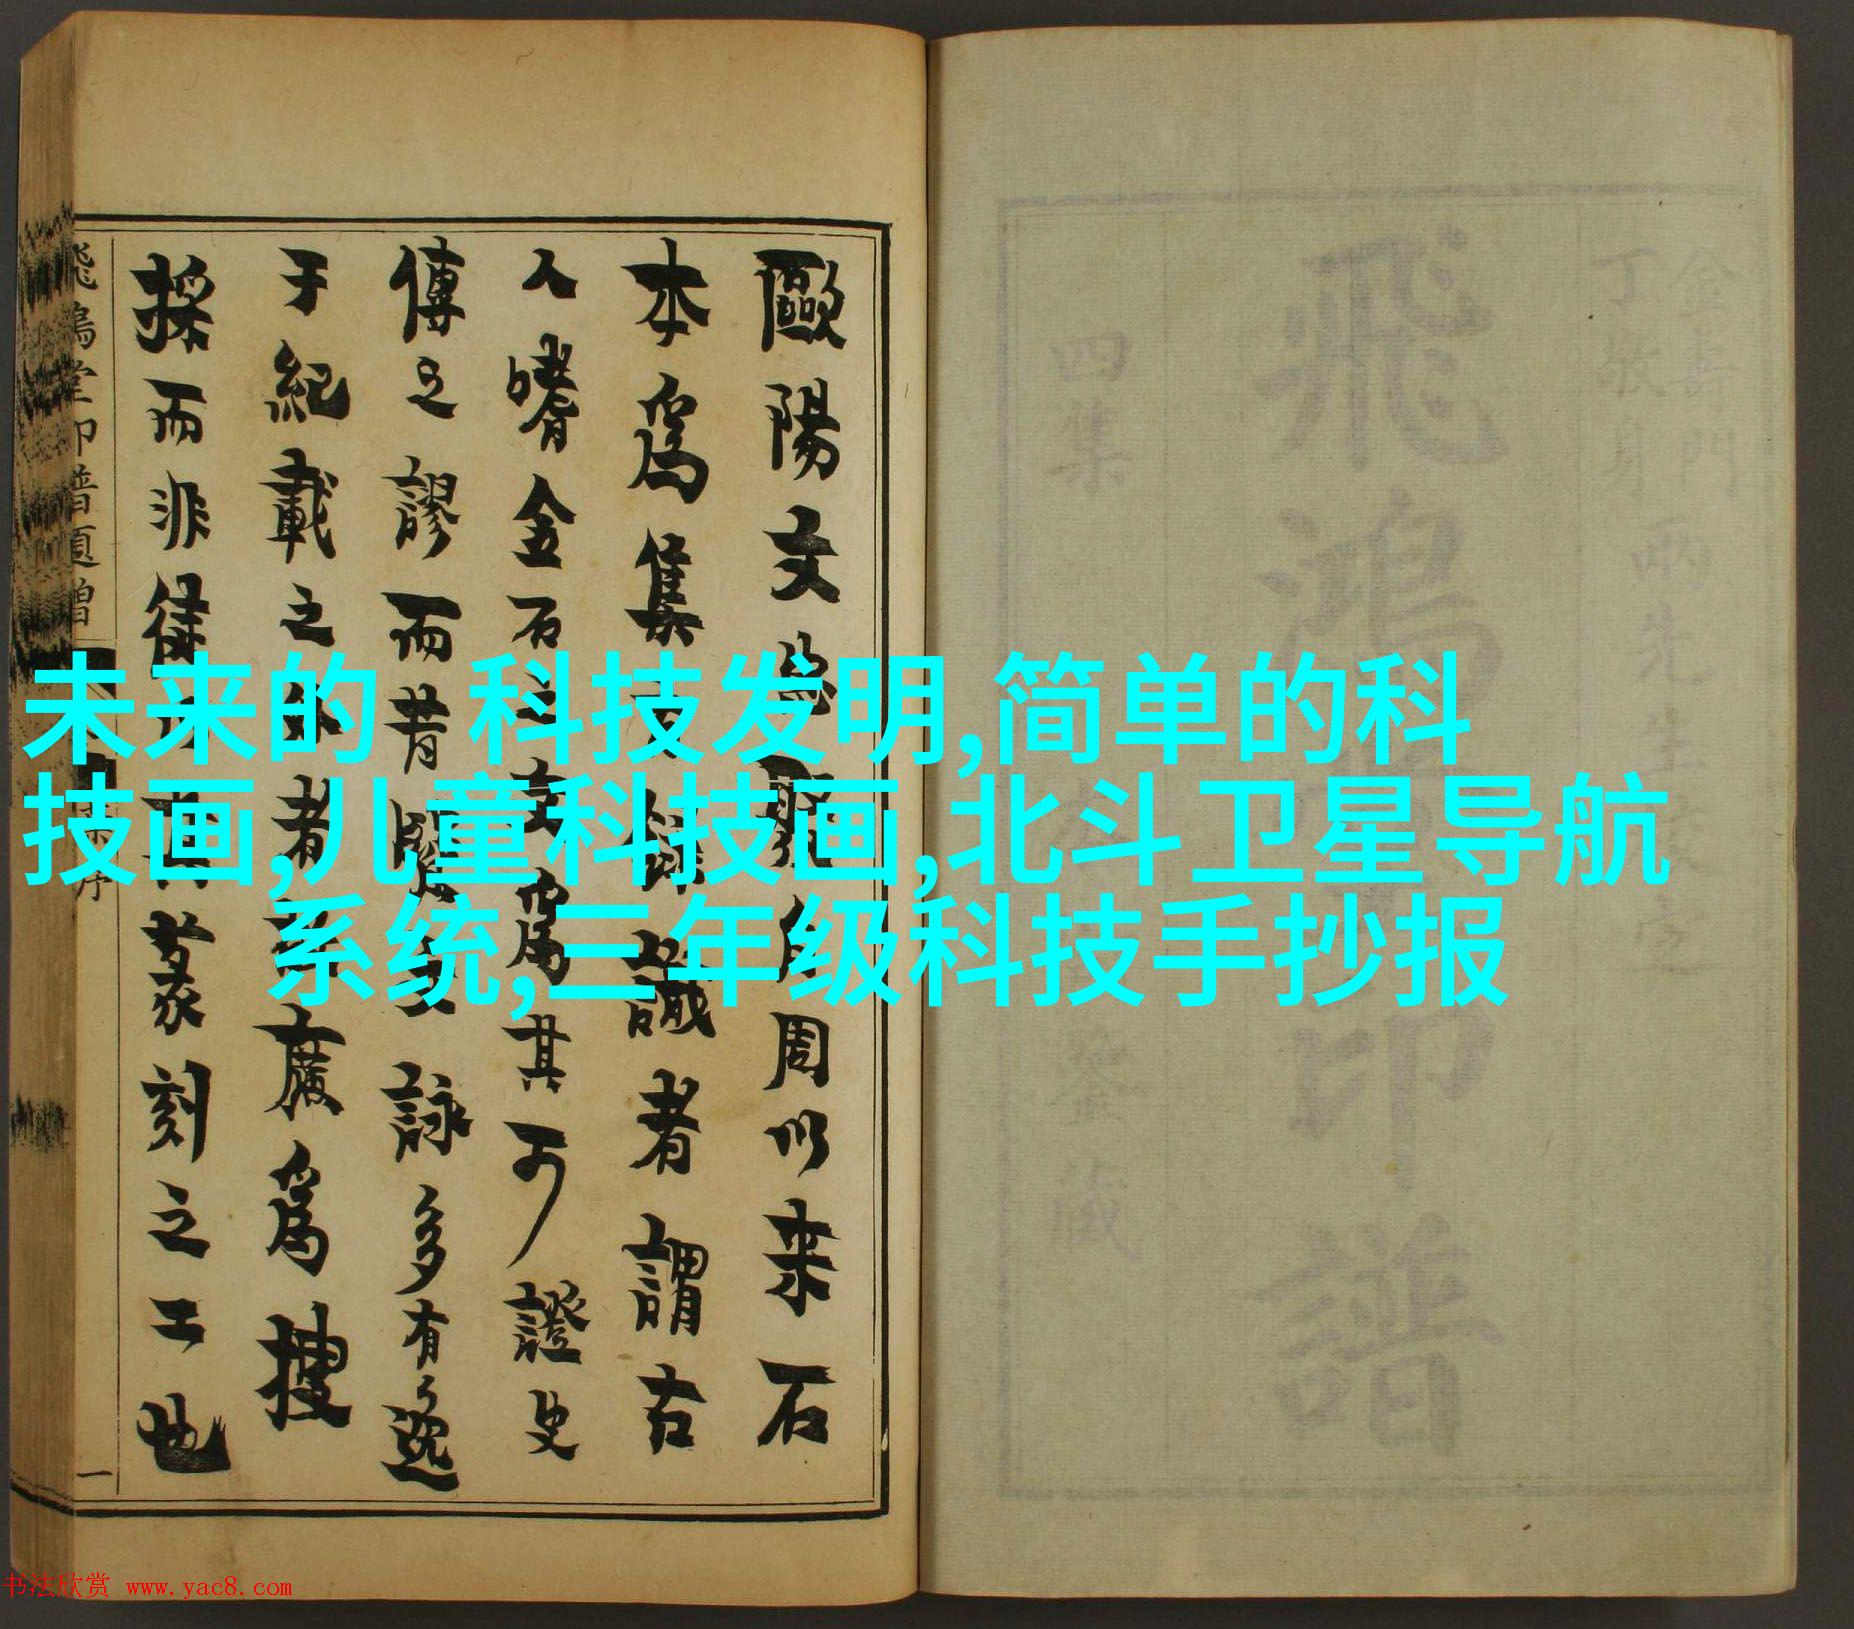 金壽門
丁敬身
兩先生
飛鴻堂印譜
四集
鑒藏
歐陽文忠聚自周以来石
本為集古錄識者謂古
人嗜金石之文為其可證史
傳之謬而昔賢文詠多有逸
于紀載之外者兼廣為搜
採而非徒以其篆刻之工也
飛鴻堂印譜
序
一
未来的 科技发明,简单的科
技画,儿童科技画,北斗卫星导航
系统,三年级科技手抄报
书法欣赏 www.yac8.com